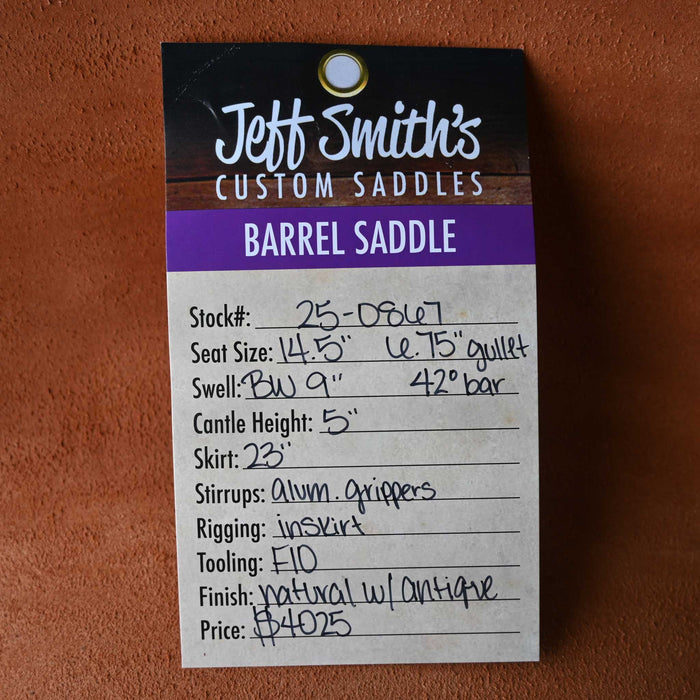 Jeff Smith's
CUSTOM SADDLES
BARREL SADDLE
Stock#: 25-0867
Seat Size: 14.5" 6.75" gullet
Swell: BW 9" 42° bar
Cantle Height: 5"
Skirt: 23"
Stirrups: alum. grippers
Rigging: inskirt
Tooling: F10
Finish: natural w/ antique
Price: $4025